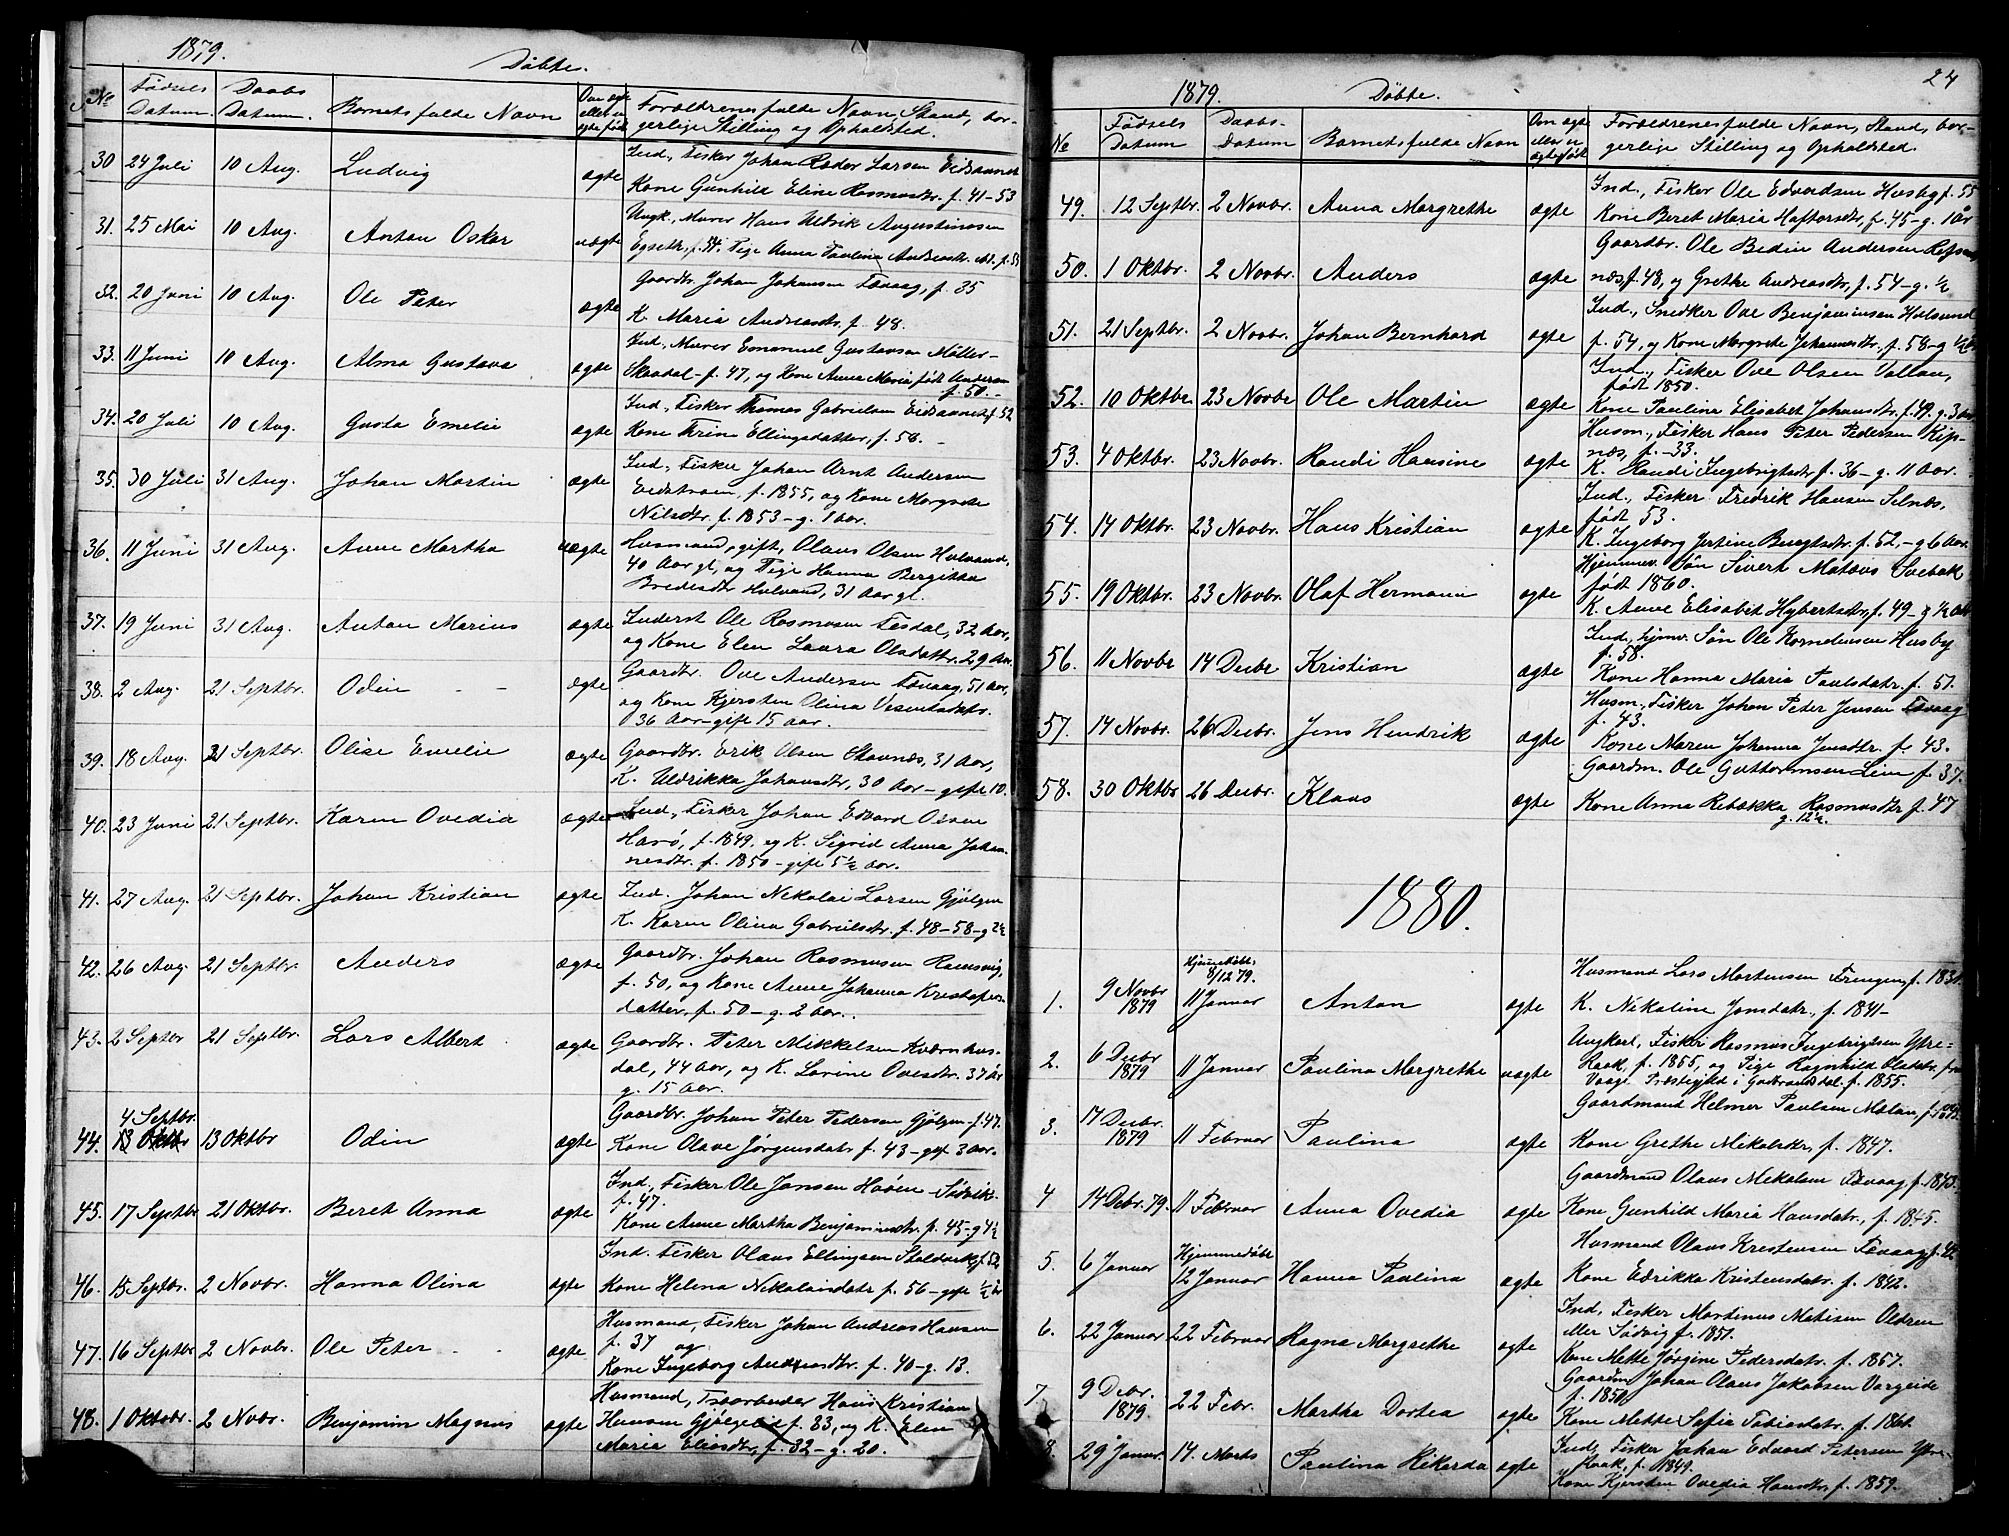 1879.
Døbte.
No
Fødsels Datum.
Daabs Datum.
Barnets fulde Navn
Om ægte eller u- ægte født
Forældrenes fulde Navn, Stand, bor-
gerlige Stilling og Opholdsted.
30 24 Juli 10 Aug. Ludvig ægte Ind., Fisker Johan Larsen
Kone Gunhild Eline Rasmusdtr. f. 41-53
31. 25 Mai 10 Aug. Anton Oskar uægte Ungk., Murer Hans Uldrik Augustinusen
Egseth, f. 54. Pige Anna Paulina Andreasdtr.
32. 20 Juni 10 Aug. Ole Peter ægte Gaardbr. Johan Johansen Tævaag, f. 35
K. Maria Andreasdtr. f. 48.
33. 11 Juni 10 Aug. Alma Gustava ægte Ind., Murer Emanuel Gustavsen Møller-
Skaadal - f. 47, og Kone Anne Maria født Andersen
f. 50.-
34. 20 Juli 10 Aug. Gusta Emelie ægte Ind., Fisker Thomas Gabrielsen f. 52
Kone Trine Ellingsdatter, f. 56. -
35. 30 Juli 31 Aug. Johan Martin ægte Ind., Fisker Johan Arnt Andersen
Eidstrøm, f. 1855, og Kone Margrete
Nilsdtr. f. 1853 - g. 1 Aar.
36. 11 Juni 31 Aug. Anne Martha uægte Husmand, gift, Olaus Olsen Hulvand,
40 Aar gl., og Pige Hanna Bergitha
Bredesdtr Hulvand, 31 Aar gl.
37. 19 Juni 31 Aug. Anton Marius ægte Inderst Ole Rasmusen Tesdal, 32 Aar,
og Kone Elen Laura Olsdattr. 29 Aar.
38. 2 Aug. 21 Septbr. Odin - - ægte Gaardbr. Ove Andersen Tævaag, 51 Aar,
og Kone Kjersten Olina Visentsdatr.
36 Aar - gift 15 Aar.
39. 18 Aug. 21 Septbr. Olise Emelie ægte Gaardbr. Erik Olsen Stavnæs, 31 Aar,
K. Uldrikka Johansdtr, 30 Aar - gifte 10.
40. 23 Juni 21 Septbr. Karen Ovedia ægte Ind., Fisker Johan Edvard Olsen
Harø, f. 1849. og K. Sigrid Anna Johan-
nesdtr. f. 1850 - gift 5½ Aar.
41. 27 Aug. 21 Septbr. Johan Kristian ægte Ind. Johan Nikolai Larsen Gjølgen
K. Karen Olina Gabrielsdtr. f. 48-58 - g 2½
42. 26 Aug. 21 Septbr. Anders ægte Gaardbr. Johan Rasmusen Ramsvig,
f. 50, og Kone Anne Johanna Kristofers-
datter, f. 50 - g. 2 Aar.
43. 2 Septbr 21 Septbr. Lars Albert ægte Gaardbr. Peter Mikkelsen Kværnhus-
dal, 44 Aar, og K. Lovine Ovesdtr. 37 År
g. 15 Aar.
4 Septbr.
44. 13 Oktbr 13 Oktbr Odin ægte Gaardbr. Johan Peter Pedersen Gjølgen f. 47.
Kone Olave Jørgensdatr f. 43 - gift 3 Aar.
45. 17 Septbr 21 Oktbr. Beret Anna ægte Ind., Fisker Ole Jansen
f. 47.
Kone Anne Martha Benjaminsdtr. f. 45 - g 4½
46. 15 Septbr. 2 Novbr. Hanna Olina ægte Ind. Fisker Olaus Ellingsen Staldvik, f. 52
Kone Helena Nikolaisdatr f. 56 - gift ½ År
47. 16 Septbr 2 Novbr. Ole Peter - - ægte Husmand, Fisker Johan Andreas Hansen
f. 37 og
Kone Ingeborg Andreasdtr. f. 40 - g. 13.
48. 1 Oktobr. 2 Novbr. Benjamin Magnus ægte Husmand, Hans Kristian
Hansen f. 33, og K. Elen
Maria Eliasdtr, f. 32 - g. 20.
24
1879.
Døbte.
No
Fødsels Datum
Daabs- Datum
Barnets fulde Navn
Om ægte eller u- ægte født
Forældrenes fulde Navn, Stand, bor-
gerlige Stilling og Opholdsted.
49. 12 Septbr. 2 Novbr. Anna Margrethe ægte Ind., Fisker Ole Edvardsen Husby f. 55
Kone Beret Maria Haftorsdtr, f. 45 - g. 1 År
50. 1 Oktbr. 2 Novbr. Anders ægte Gaardbr. Ole Bedin Andersen
næs f. 48, og Grethe Andreasdtr, f. 54 - g. ½
51. 21 Septbr. 2 Novbr. Johan Bernhard ægte Ind., Snedker Ove Benjaminsen Hulvand
f. 54, og Kone Margrete Johannesdtr., f. 58 - g ½
52. 10 Oktbr. 23 Novbr Ole Martin ægte Ind., Fisker Ove Olsen
født 1850.
Kone Paulina Elisabet Johansdtr. f. 49. g. 3 Aar
53. 4 Oktbr. 23 Novbr. Randi Hansine ægte Husm., Fisker Hans Peter Pedersen Kip-
næs, f. -33.
K. Randi Ingebrigtsdtr f. 36 - g. 11 Aar.
54. 14 Oktbr. 23 Novbr. Hans Kristian ægte Ind., Fisker Fredrik Hansen Selnæs,
født 53.
K. Ingeborg Jertine f. 52, - g 6 Aar.
55. 19 Oktbr. 23 Novbr. Olaf Hermann ægte Hjemmev. Søn Sivert Mataus Svebak
født 1860.
K. Anne Elisabet Hybertsdtr, f. 49 - g ½
56. 11 Novbr 14 Decbr Kristian ægte Ind., hjmv. Søn Ole Kornelensen Husby
f. 58.
Kone Hanna Maria Paulsdatr. f. 57.
57. 14 Novbr. 26 Decbr. Jens Hendrik ægte Husm., Fisker Johan Peter Jensen Tævaag
f. 43.
Kone Maren Johanna Jensdtr. f. 43.
58. 30 Oktbr 26 Decbr. Klaus ægte Gaardm. Ole Guttormsen Lein f. 37.
Kone Anna Rebekka Rasmusdtr f. 47
g. 12½.
1880.
Hjemmedøbt
8/12 79.
1. 9 Novbr 1879 11 Januar Anton ægte Husmand Lars Mortensen f. 1831.
K. Nikoline Jonsdatr., f. 1841-
2. 6 Decbr 1879 11 Januar Paulina Margrethe uægte Ungkarl, Fisker Rasmus Ingebrigtsen Ytre-
Haak, f. 1855, og Pige Ragnhild Olsdatr. fra
Vaage Præstegjeld i Gudbrandsdal. f. 1855.
3. 17 Decbr. 1879 11 Februar Paulina ægte Gaardmand Helmer Paulsen
Kone Grethe Mikalsdtr, f. 1847.
4 14 Decbr. 79. 11 Februar Anna Ovedia ægte Gaardmand Olaus Nikolaisen Tævaag, f. 1843.
Kone Gunhild Maria Hansdatr., f. 1845.
5. 6 Januar Hjemmedøbt
12 Januar Hanna Paulina ægte Husmand Olaus Kristensen Tævaag f. 42
Kone Edrikka Kristensdatr. f. 1842.
6. 22 Januar 22 Februar Ragna Margrethe ægte Ind., Fisker Martinus Matisen Oldren
eller Södvig f. 1851.
Kone Mette Jørgine Pedersdatr. f. 1857.
7. 9 Debr. 1879. 22 Febr. Martha Dortea ægte Gaardm Johan Olaus Jakobsen
f. 1850
Kone Mette Sofia Tobiasdatr. f.
8. 29 Januar. 14. Marts Paulina Rikarda ægte Ind., Fisker Johan Edvard Petersen Ytre-
Haak, f. 1849.
Kone Kjersten Ovedia Hansdtr. f. 1859.